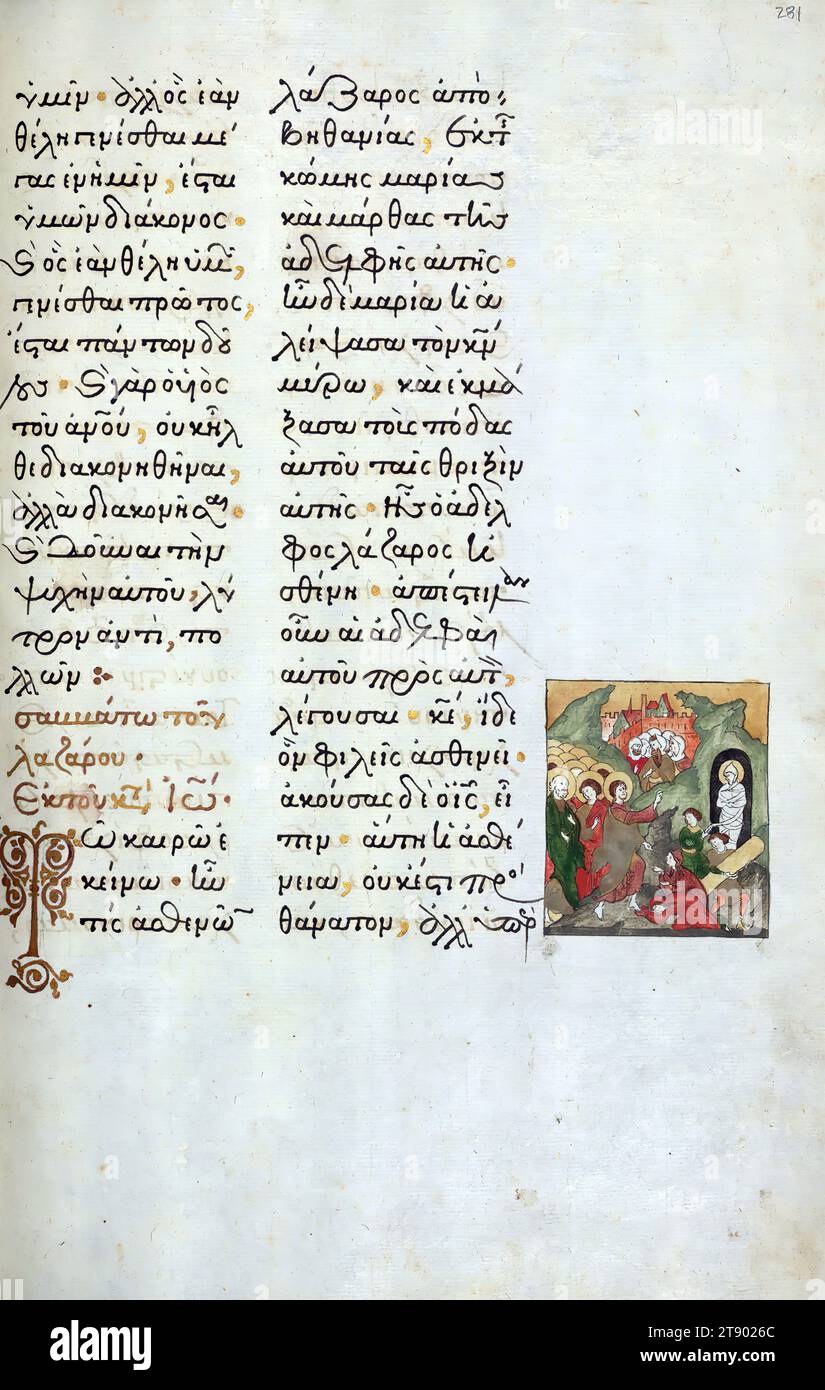 281
ὑμῖν· ἀλλ' ὃς ἐὰν
θέλη γενέσθαι μέ
γας ἐν ὑμῖν, ἔσται
ὑμῶν διάκονος·
καὶ ὃς ἐὰν θέλη ὑμῶν,
γενέσθαι πρῶτος,
ἔσται πάντων δοῦ
λος· καὶ γὰρ ὁ υἱὸς
τοῦ ἀνου, οὐκ ἦλ
θε διακονηθῆναι,
ἀλλὰ διακονῆσαι·
καὶ δοῦναι τὴν
ψυχὴν αὐτοῦ, λύ
τρον ἀντὶ, πο
λλῶν
σαββάτω τοῦ
λαζάρου·
Ἐκ τοῦ κτ Ἰω·
Τῶ καιρῶ ἐ
κείνω· ἦν
τίς ἀσθενῶν
λάζαρος ἀπὸ
βηθανίας, ἐκ τῆς
κώμης μαρίας
καὶ μάρθας τῆς
ἀδελφῆς αὐτῆς·
ἦν δὲ μαρία ἡ ἀ
λείψασα τὸν κν
μύρω, καὶ ἐκμά
ξασα τοὺς πόδας
αὐτοῦ ταῖς θριξὶν
αὐτῆς· ἧς ὁ ἀδελ
φὸς λάζαρος ἠ
σθένη· ἀπέστειλαν
οὖν αἱ ἀδελφαὶ
αὐτοῦ πρὸς αὐτὸν,
λέγουσαι· κε, ἴδε
ὃν φιλεῖς ἀσθενεῖ·
ἀκούσας δὲ ὁ ις, εἶ
πεν· αὕτη ἡ ἀσθέ
νεια, οὐκ ἔστι πρὸς
θάνατον, ἀλλ' ὑπὲρ
alamy
Image ID: 2T9026C
www.alamy.com